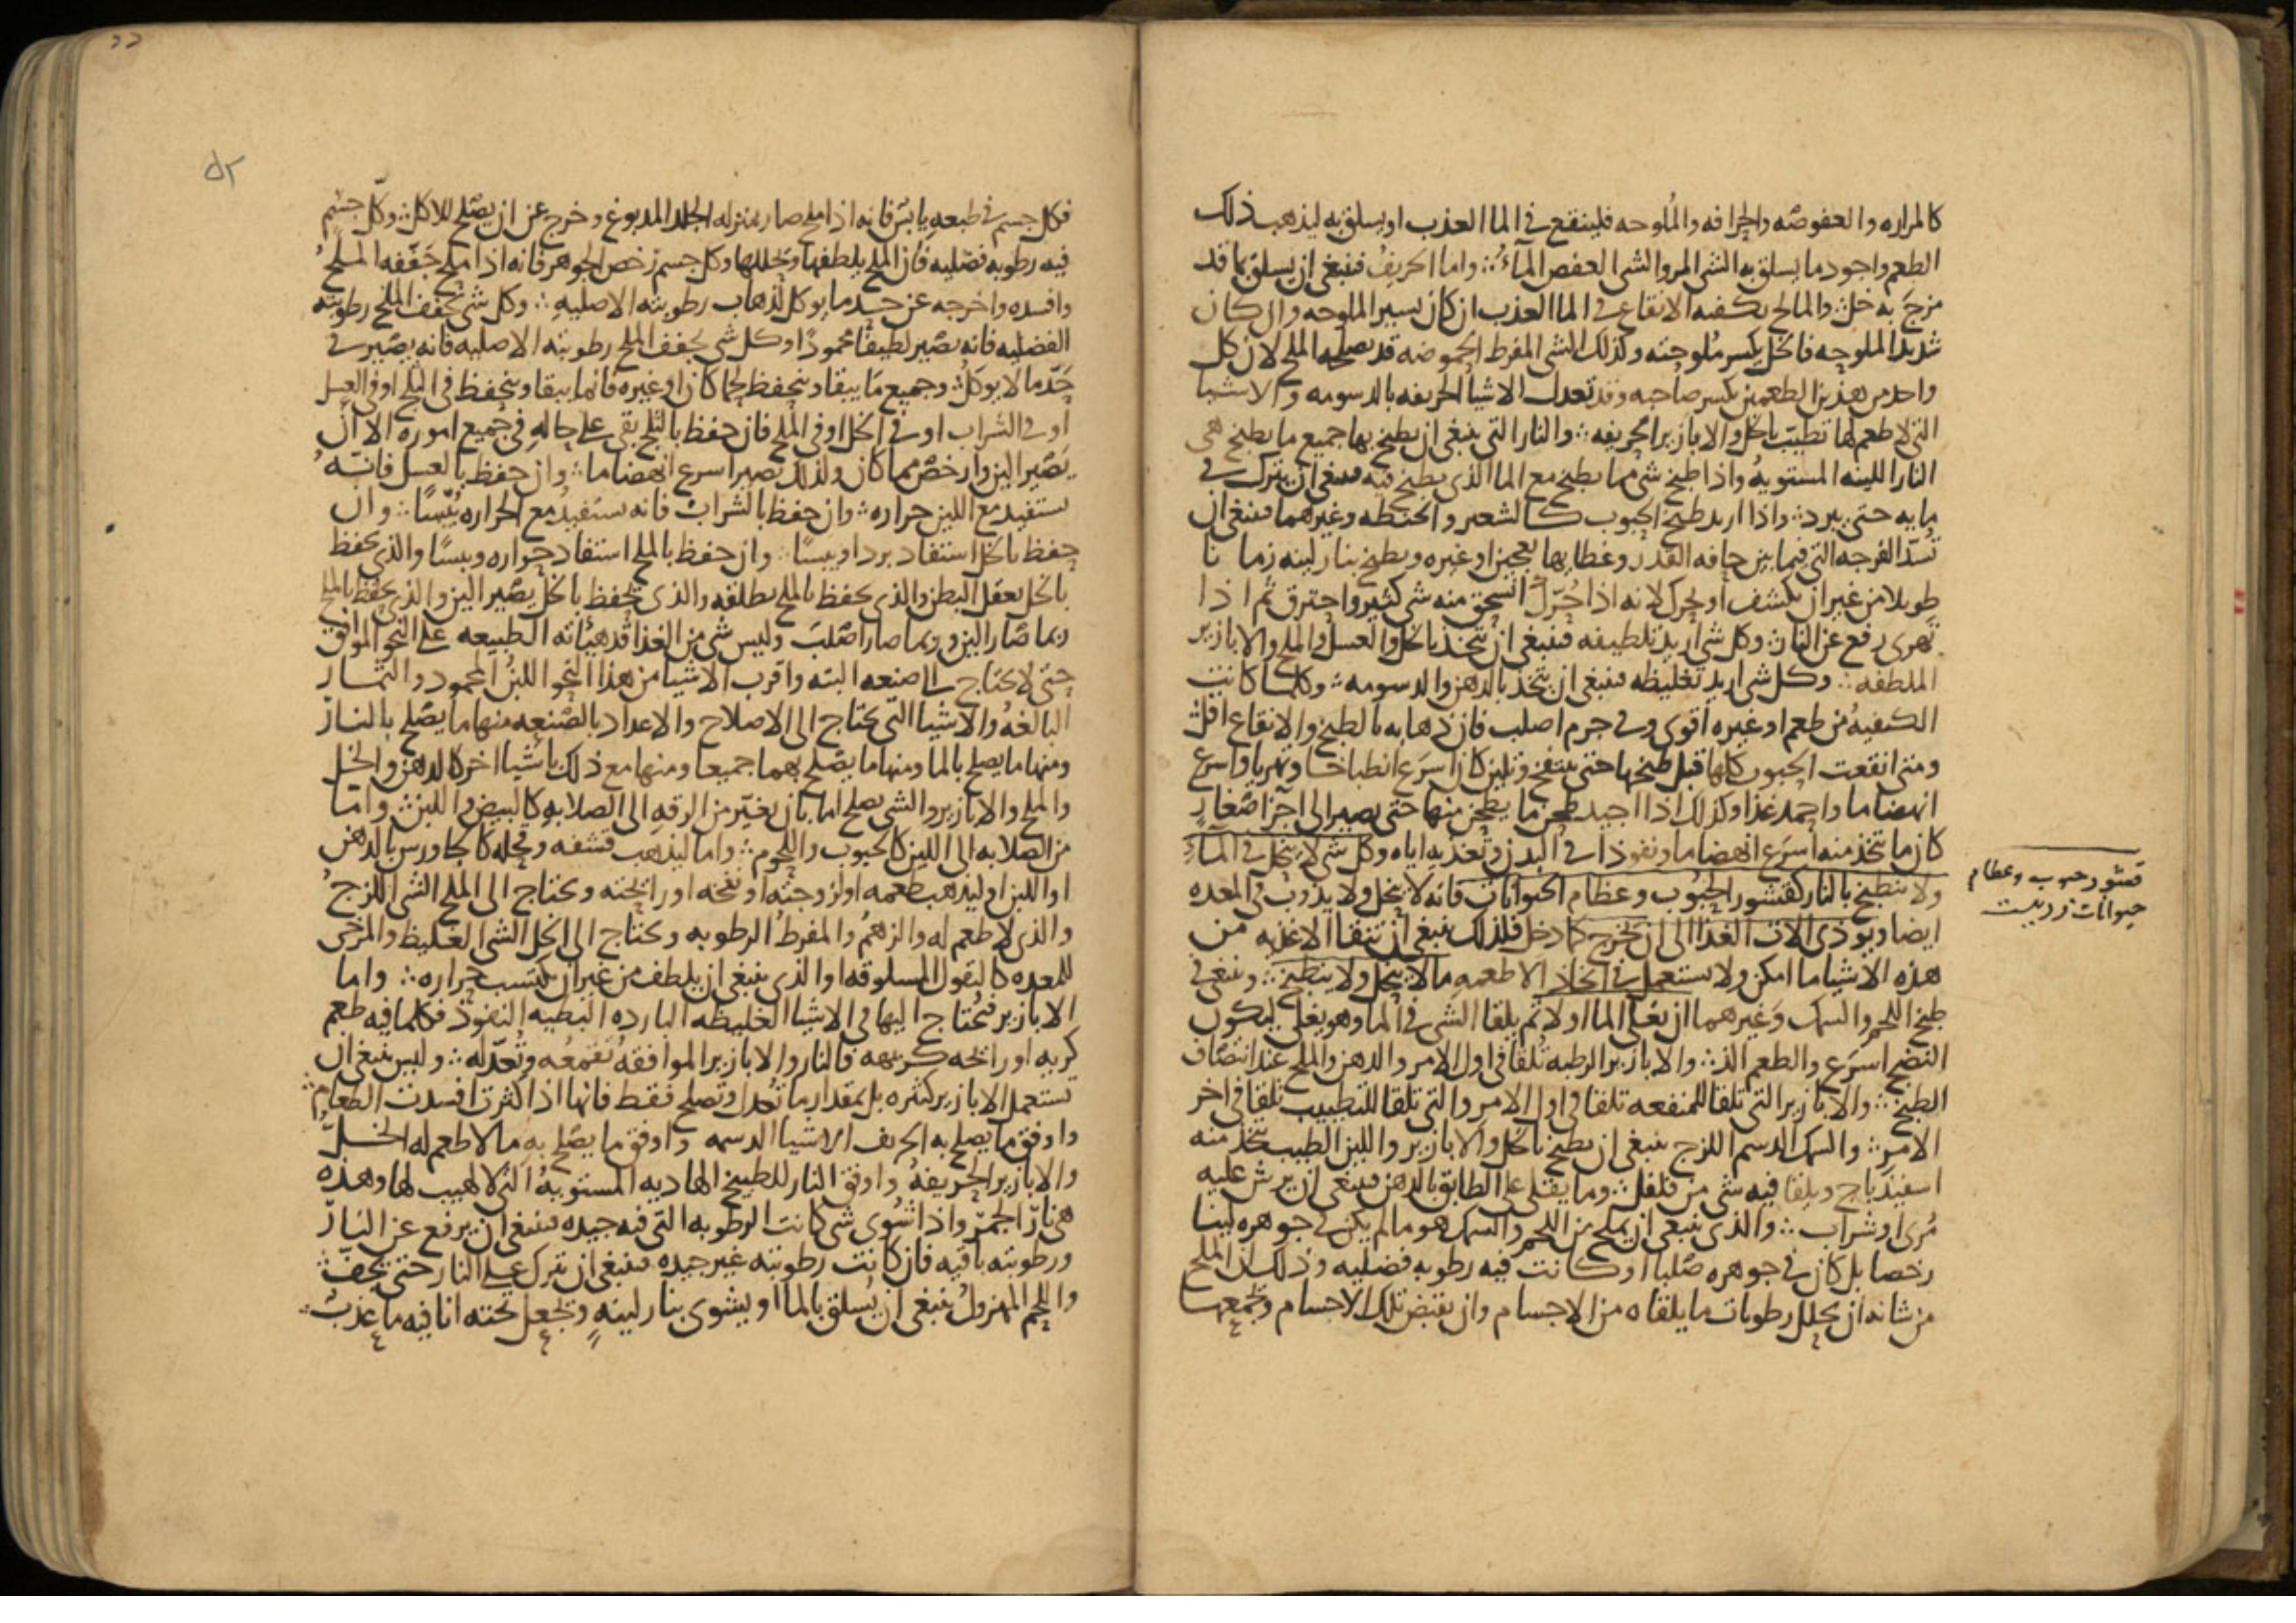 كالمراره والعفوصه والحرافه والملوحه فلينقع في الما العذب او يسلق به ليذهب ذلك
الطعم واجود ما يسلق به الشي المر والشي العفص المآء ؞ واما الحريف فينبغي ان يسلق بما قد
مزج به خل ؞ والمالح يكفيه الانقاع في الما العذب ان كان يسير الملوحه وان كان
شديد الملوحه فالخل يكسر ملوحته وكذلك الشي المفرط الحموضه قد يصلحه الملح لان كل
واحد من هذين الطعمين يكسر صاحبه وقد تعدل الاشيا الحريفه بالدسومه والاشيا
التي لا طعم لها تطيب بالخل والابازير الحريفه ؞ والنار التي ينبغي ان يطبخ بها جميع ما يطبخ هي
النار اللينه المستويه واذا طبخ شي مما يطبخ مع الما الذي يطبخ فيه فينبغي ان يترك في
مايه حتى يبرد ؞ واذا اريد طبخ الحبوب كالشعير والحنطه وغيرهما فينبغي ان
تسد الفرجه التي فيما بين حافه القدر وغطايها بعجين او غيره ويطبخ بنار لينه زمانا
طويلا من غير ان يكشف او يحرك لانه اذا حرك انسحق منه شي كثير واحترق ثم اذا
تهرى رفع عن النار ؞ وكل شي اريد تلطيفه فينبغي ان يتخذ بالخل والعسل والملح والابازير
الملطفه ؞ وكل شي اريد تغليظه فينبغي ان يتخذ بالدهن والدسومه ؞ وكلما كانت
الكيفيه من طعم او غيره اقوى وفي جرم اصلب فان ذهابه بالطبخ والانقاع اقل ؞
ومتى انقعت الحبوب كلها قبل طبخها حتى تنتفخ وتلين كان اسرع انطباخا وتهريا واسرع
انهضاما واحمد غذا وكذلك اذا اجيد طحن ما يطحن منها حتى يصير الى اجزا صغار
كان ما تتخذ منه اسرع انهضاما ونفوذا في البدن وتغذيه اياه وكل شي لا ينحل في المآء
ولا ينطبخ بالنار كقشور الحبوب وعظام الحيوانات فانه لا ينحل ولا يذوب في المعده
ايضا ويوذي الات الغذا الى ان يخرج كما دخل فلذلك ينبغي ان تنقا الاغذيه من
هذه الاشيا ما امكن ولا يستعمل في اتخاذ الاطعمه ما لا ينحل ولا ينطبخ ؞ وينبغي في
طبخ اللحم والسمك وغيرهما ان يغلى الما اولا ثم يلقا الشي في الما وهو يغلي ليكون
النضج اسرع والطعم الذ ؞ والابازير الرطبه تلقا في اول الامر والدهن والملح عند انتصاف
الطبخ ؞ والابازير التي تلقا للمنفعه تلقا في اول الامر والتي تلقا للتطييب تلقا في اخر
الامر ؞ والسمك الدسم اللزج ينبغي ان يطبخ بالخل والابازير واللين الطيب يتخذ منه
اسفيدباج ويلقا فيه شي من فلفل ؞ وما يقلى على الطابق بالدهن فينبغي ان يرش عليه
مرى او شراب ؞ والذي ينبغي ان يملح من اللحم والسمك هو ما لم يكن في جوهره لينا
رخصا بل كان في جوهره صلبا او كانت فيه رطوبه فضليه وذلك لان الملح
من شانه ان يحلل رطوبات ما يلقاه من الاجسام وان يقبض تلك الاجسام ويجمعها
قشور حبوب وعظام
حيوانات
٥٢
فكل جسم في طبعه يابس فانه اذا ملح صار بمنزله الجلد المدبوغ وخرج عن ان يصلح للاكل ؞ وكل جسم
فيه رطوبه فضليه فان الملح يلطفها ويحللها وكل جسم رخص الجوهر فانه اذا ملح جففه الملح
وافسده واخرجه عن حد ما يوكل لذهاب رطوبته الاصليه ؞ وكل شي يجفف الملح رطوبته
الفضليه فانه يصير لطيفا محمودا وكل شي يجفف الملح رطوبته الاصليه فانه يصير في
حد ما لا يوكل ؞ وجميع ما يبقا ويحفظ لحما كان او غيره فانما يبقا ويحفظ في الثلج او في العسل
او في الشراب او في الخل او في الملح فان حفظ بالثلج بقي على حاله في جميع اموره الا ان
يصير الين وارخص مما كان ولذلك يصير اسرع انهضاما ؞ وان حفظ بالعسل فانه
يستفيد مع اللين حراره ؞ وان حفظ بالشراب فانه يستفيد مع الحراره يبسا ؞ وان
حفظ بالخل استفاد بردا ويبسا ؞ وان حفظ بالملح استفاد حراره ويبسا والذي يحفظ
بالخل يعقل البطن والذي يحفظ بالملح يطلقه والذي يحفظ بالخل يصير الين والذي يحفظ بالملح
ربما صار الين وربما صار اصلب وليس شي من الغذا قد هيأته الطبيعه على النحو الموافق
حتى لا يحتاج الى صنعه البته واقرب الاشيا من هذا النحو اللبن المحمود والثمار
البالغه والاشيا التي تحتاج الى الاصلاح والاعداد بالصنعه منها ما يصلح بالنار
ومنها ما يصلح بالما ومنها ما يصلح بهما جميعا ومنها مع ذلك باشيا اخر كالدهن والخل
والملح والابازير والشي يصلح اما بان يغير من الرقه الى الصلابه كالبيض واللبن ؞ واما
من الصلابه الى اللين كالحبوب واللحوم ؞ واما ليذهب قشفه وقحله كالجاورس بالدهن
او اللبن او ليذهب طعمه او لزوجته او نفخه او رائحته ويحتاج الى الملح الشي اللزج
والذي لا طعم له والزهم والمفرط الرطوبه ويحتاج الى الخل الشي الغليظ والمرخي
للمعده كالبقول المسلوقه او الذي ينبغي ان يلطف من غير ان يكتسب حراره ؞ واما
الابازير فيحتاج اليها في الاشيا الغليظه البارده البطيه النفوذ فكلما فيه طعم
كريه او رائحه كريهه فالنار والابازير الموافقه تقمعه وتعدله ؞ وليس ينبغي ان
تستعمل الابازير كثيره بل بمقدار ما تعدل وتصلح فقط فانها اذا كثرت افسدت الطعام ؞
واوفق ما يصلح به الحريف الاشيا الدسمه واوفق ما يصلح به ما لا طعم له الخل
والابازير الحريفه واوفق النار للطبيخ الهاديه المستويه التي لا لهيب لها وهذه
هي نار الجمر واذا شوي شي كانت الرطوبه التي فيه جيده فينبغي ان يرفع عن النار
ورطوبته باقيه فان كانت رطوبته غير جيده فينبغي ان يترك على النار حتى يجف ؞
واللحم المهزول ينبغي ان يسلق بالما او يشوى بنار لينه ويجعل تحته انا فيه ما عذب ؞